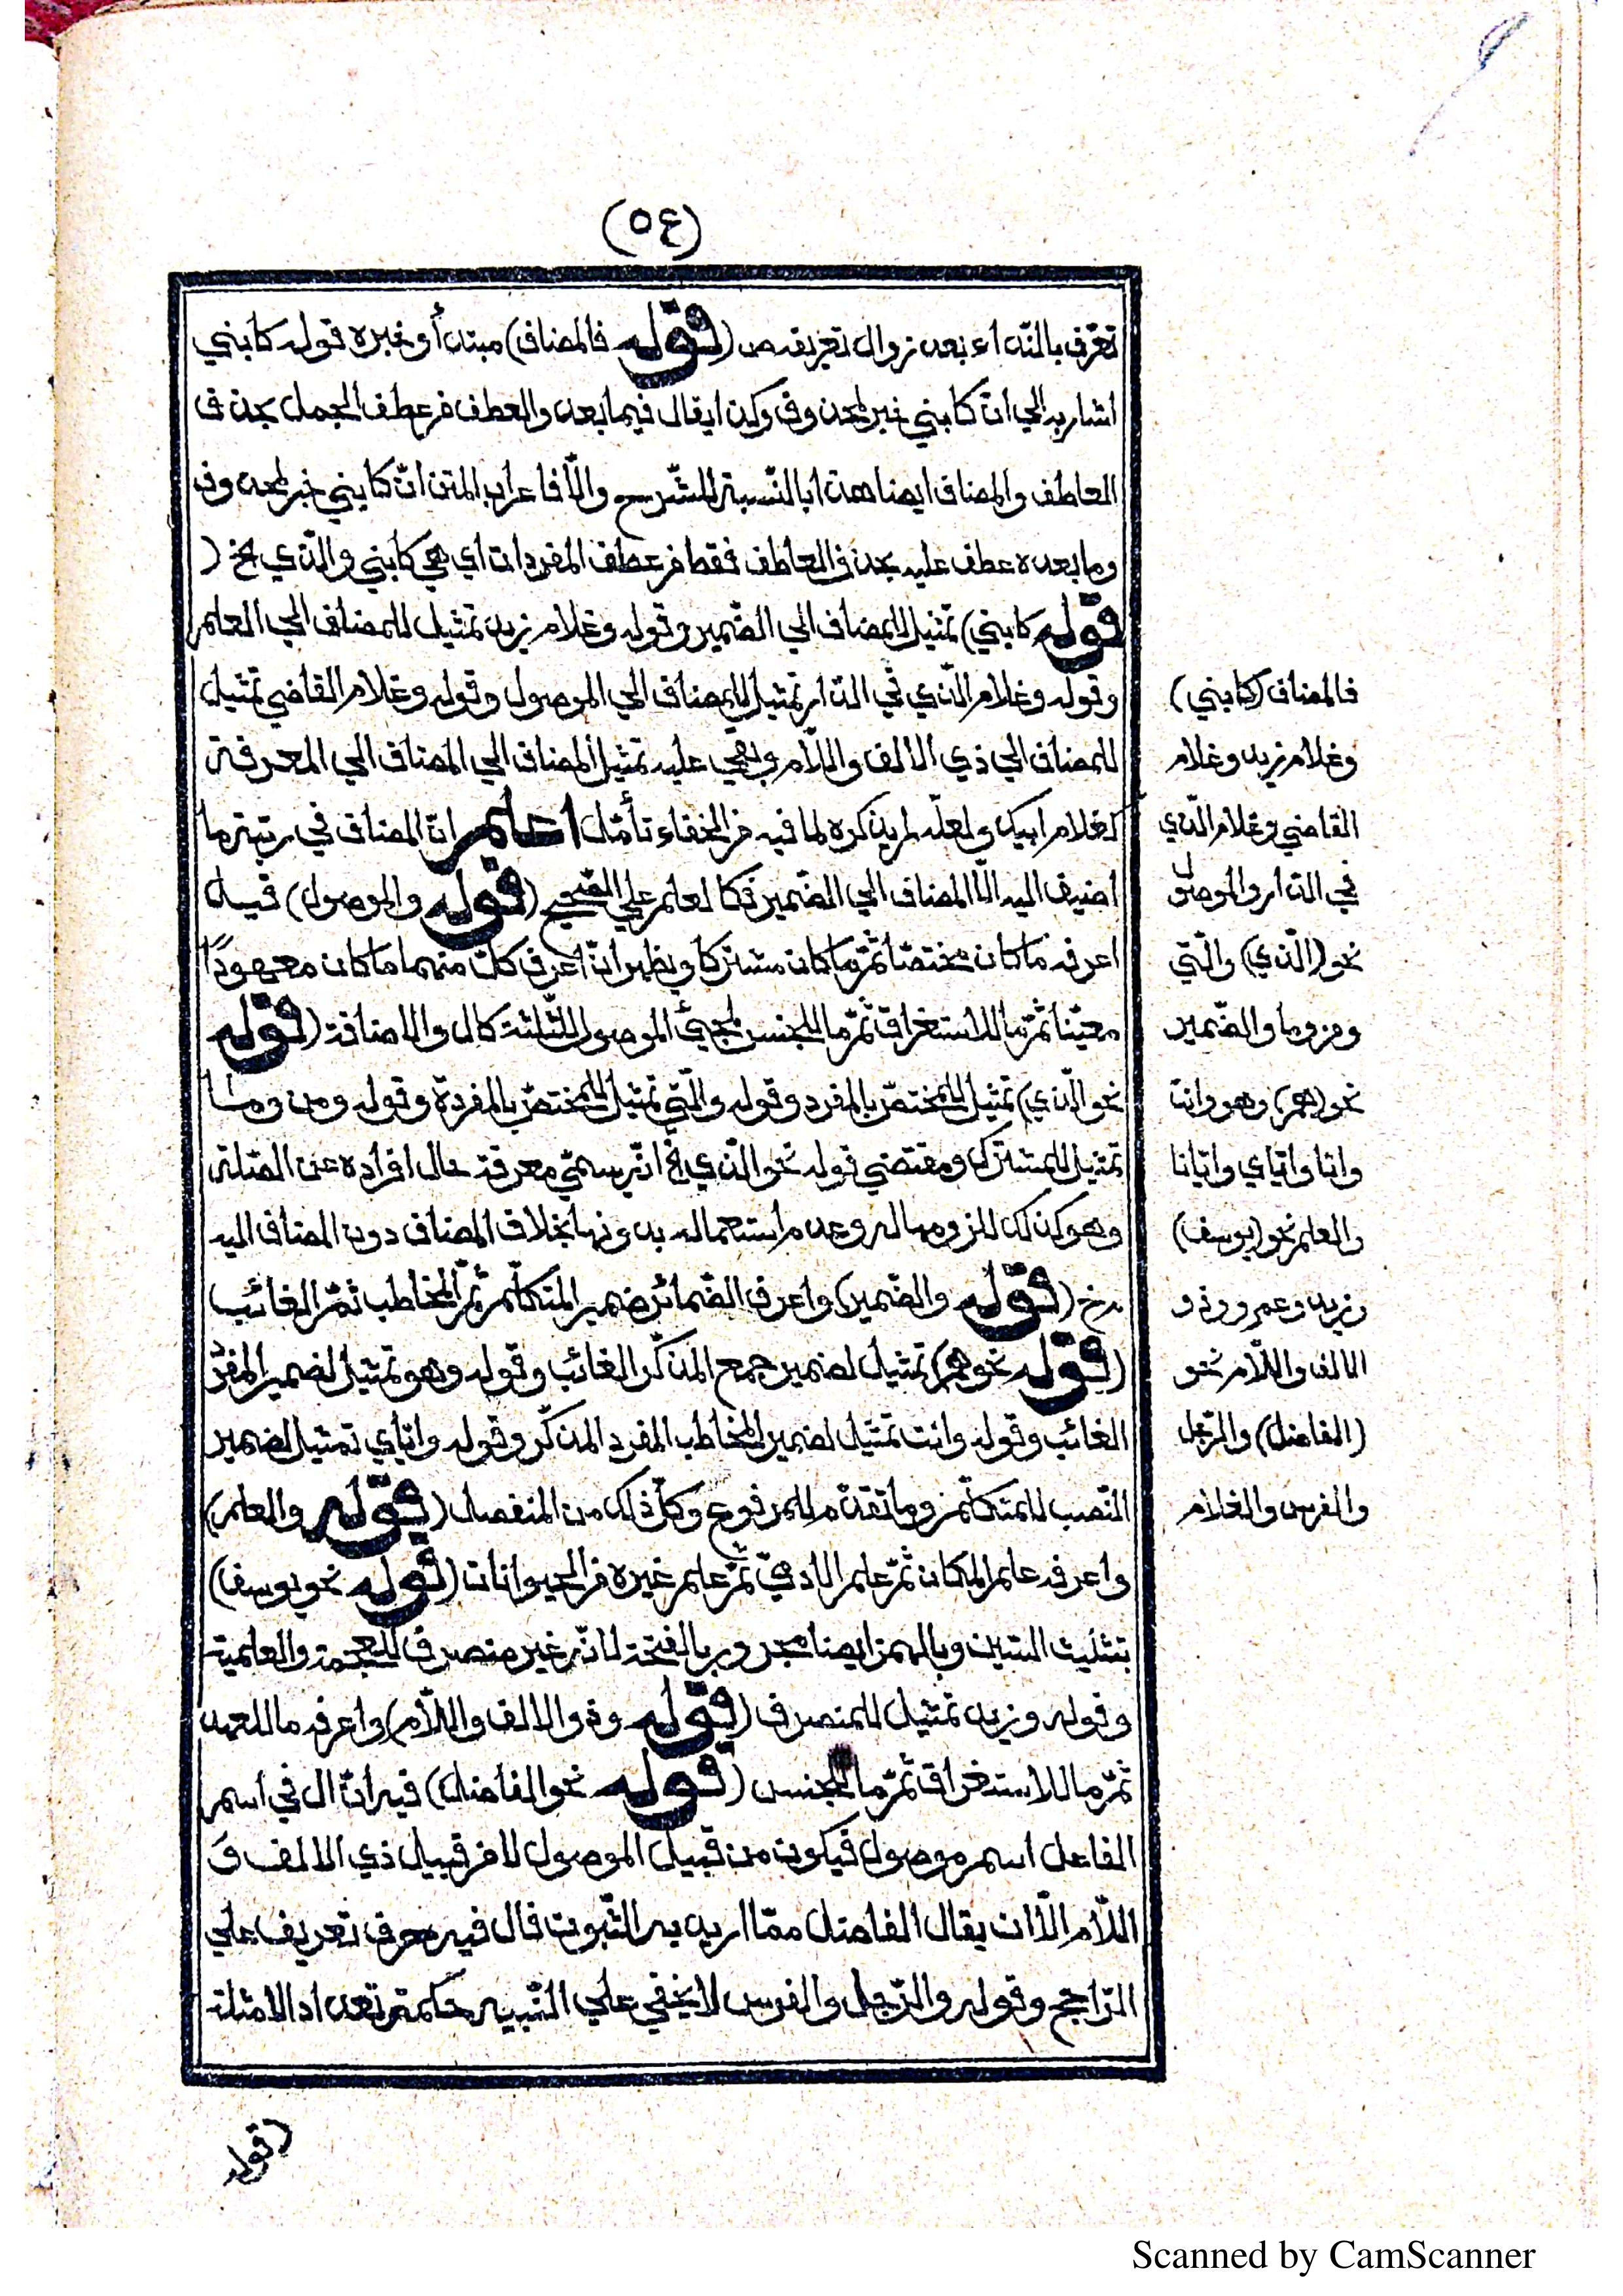 (٥٤)
تعرّف بالنّداء بعد زوال تعريفه ص (قوله فالمضاف) مبتدأ وخبره قوله كابني
اشار به الي انّ كابني خبر لمحذوف وكذا يقال فيما بعده والعطف من عطف الجمل بحذف
العاطف والمضاف ايضا هذا بالنّسبة للشّرح والّا فاعراب المتن انّ كابني خبر لمحذوف
وما بعده عطف عليه بحذف العاطف فقط من عطف المفردات اي هي كابني والّذي الخ (
قوله كابني) تمثيل للمضاف الي الضّمير وقوله وغلام زيد تمثيل للمضاف الي العلم
وقوله وغلام الّذي في الدّار تمثيل للمضاف الي الموصول وقوله وغلام القاضي تمثيل
للمضاف الي ذي الالف واللّام وبقي عليه تمثيل المضاف الي المضاف الي المعرفة
كغلام ابيك ولعلّه لم يذكره لما فيه من الخفاء تأمّل اعلم انّ المضاف في رتبة ما
اضيف اليه الّا المضاف الي الضّمير فكالعلم علي الصّحيح (قوله والموصول) قيل
اعرفه ما كان مختصّا ثمّ ما كان مشتركا ويظهر انّ اعرف كلّ منهما ما كان معهودًا
معيّنا ثمّ ما للاستغراق ثمّ ما للجنس لمجيئ الموصول للثّلثة كال والاضافة (قوله
نحو الّذي) تمثيل للمختصّ بالمفرد وقوله والّتي تمثيل للمختصّ بالمفردة وقوله ومن وما
تمثيل للمشترك ومقتضي قوله نحو الّذي الخ انّه يسمّي معرفة حال افراده عن الصّلة
وهو كذلك للزومها له وعدم استعماله بدونها بخلاف المضاف دون المضاف اليه
مدخ (قوله والضّمير) واعرف الضّمائر ضمير المتكلّم ثمّ المخاطب ثمّ الغائب
(قوله نحو هم) تمثيل لضمير جمع المذكّر الغائب وقوله وهو تمثيل لضمير المفرد
الغائب وقوله وانت تمثيل لضمير المخاطب المفرد المذكّر وقوله وايّاي تمثيل لضمير
النّصب للمتكلّم وما تقدّم للمرفوع وكلّ ذلك من المنفصل (قوله والعلم)
واعرفه علم المكان ثمّ علم الادميّ ثمّ علم غيره من الحيوانات (قوله نحو يوسف)
بتثليث السّين وبالهمز ايضا مجرور بالفتحة لانّه غير منصرف للعجمة والعلمية
وقوله وزيد تمثيل للمنصرف (قوله وذو الالف واللّام) واعرفه ما للعهد
ثمّ ما للاستغراق ثمّ ما للجنس (قوله نحو الفاضل) فيه انّ ال في اسم
الفاعل اسم موصول فيكون من قبيل الموصول لا من قبيل ذي الالف و
اللّام الّا ان يقال الفاضل ممّا اريد به الثّبوت فال فيه حرف تعريف علي
الرّاجح وقوله والرّجل والفرس لا يخفي علي النّبيه حكمة تعداد الامثلة
(قوله
فالمضاف (كابني)
وغلام زيد وغلام
القاضي وغلام الّذي
في الدّار والموصول
نحو (الّذي) والّتي
ومن وما والضّمير
نحو (هم) وهو وانت
وانا وايّاي وايّانا
والعلم نحو (يوسف)
وزيد وعمرو وذو
الالف واللّام نحو
(الفاضل) والرّجل
والفرس والغلام
Scanned by CamScanner